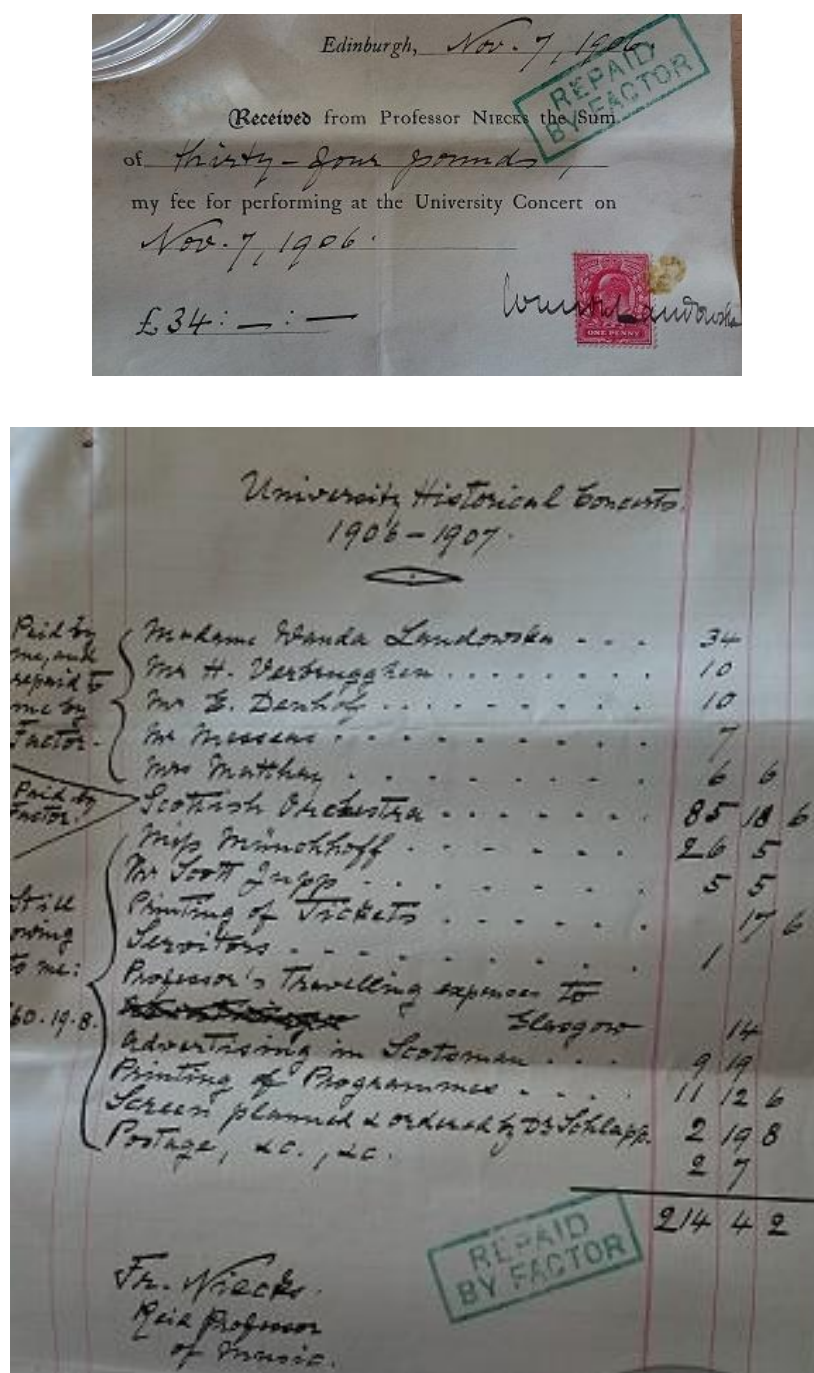 Edinburgh, Nov. 7, 1906.
REPAID
BY FACTOR
Received from Professor NIECKS the Sum
of thirty-four pounds,
my fee for performing at the University Concert on
Nov. 7, 1906.
£34 : — : —
Landowska
ONE PENNY
University Historical Concerts.
1906 – 1907.
Paid by
me, and
repaid to
me by
Factor.
Madame Wanda Landowska - - - 34
Mr H. Verbrugghen . . . . . . . . 10
Mr E. Denhof . . . . . . . . . 10
Mr Messeas . . . . . . . . . . 7
Mrs Matthay . . . . . . . . . 6 6
Paid by
Factor.
Scottish Orchestra . . . . . . . 85 18 6
Still
owing
to me:
60.19.8.
Miss Münchhoff . . . . . . . 26 5
Mr Scott Jupp . . . . . . . . 5 5
Printing of Tickets . . . . . . 17 6
Servitors . . . . . . . . . . 1
Professor's Travelling expenses to
Glasgow 14
Advertising in Scotsman . . . 9 19
Printing of Programmes . . . . 11 12 6
Screen planned & ordered by Dr Schlapp. 2 19 8
Postage, &c., &c. 2 7
214 4 2
REPAID
BY FACTOR
Fr. Niecks.
Reid Professor
of Music.